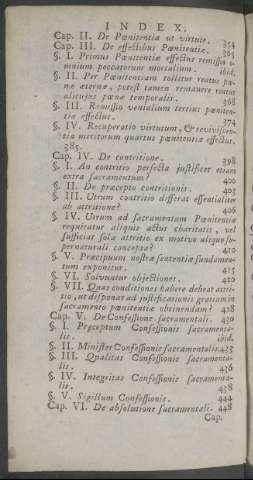 INDEX.
Cap. II. De Pœnitentia ut virtute. 354
Cap. III. De effectibus Pœnitentiæ. 363
§. I. Primus Pœnitentiæ effectus remissio
omnium peccatorum mortalium. ibid.
§. II. Per Pœnitentiam tollitur reatus pœ-
næ æternæ, potest tamen remanere reatus
alicujus pœnæ temporalis. 368
§. III. Remissio venialium tertius pœniten-
tiæ effectus. 374
§. IV. Recuperatio virtutum, & reviviscen-
tia meritorum quartus pœnitentiæ effectus.
385.
Cap. IV. De contritione. 398
§. I. An contritio perfecta justificet etiam
extra sacramentum? 400
§. II. De præcepto contritionis. 403
§. III. Utrum contritio differat essentialiter
ab attritione? 406
§. IV. Utrum ad sacramentum Pœnitentiæ
requiratur aliquis actus charitatis, vel
sufficiat sola attritio ex motivo aliquo su-
pernaturali concepta? 410
§. V. Præcipuum nostræ sententiæ fundamen-
tum exponitur. 415
§. VI. Solvuntur objectiones. 420
§. VII. Quas conditiones habere debeat attri-
tio, ut disponat ad justificationis gratiam in
sacramento pœnitentiæ obtinendam? 428
Cap. V. De Confessione sacramentali. 430
§. I. Præceptum Confessionis sacramenta-
lis. ibid.
§. II. Minister Confessionis sacramentalis. 433
§. III. Qualitas Confessionis sacramenta-
lis. 436
§. IV. Integritas Confessionis sacramenta-
lis. 438
§. V. Sigillum Confessionis. 444
Cap. VI. De absolutione sacramentali. 448
Cap.